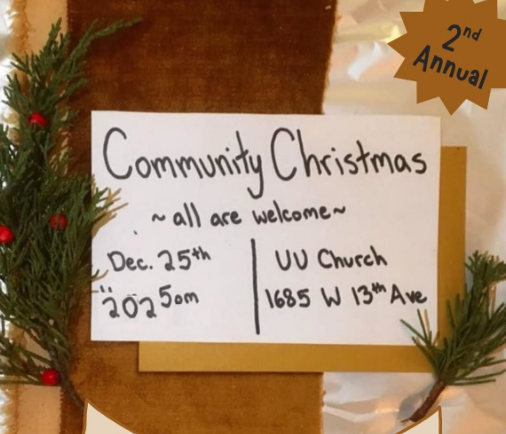 2nd
Annual
Community Christmas
~all are welcome~
Dec. 25th
UU Church
1685 W 13th Ave